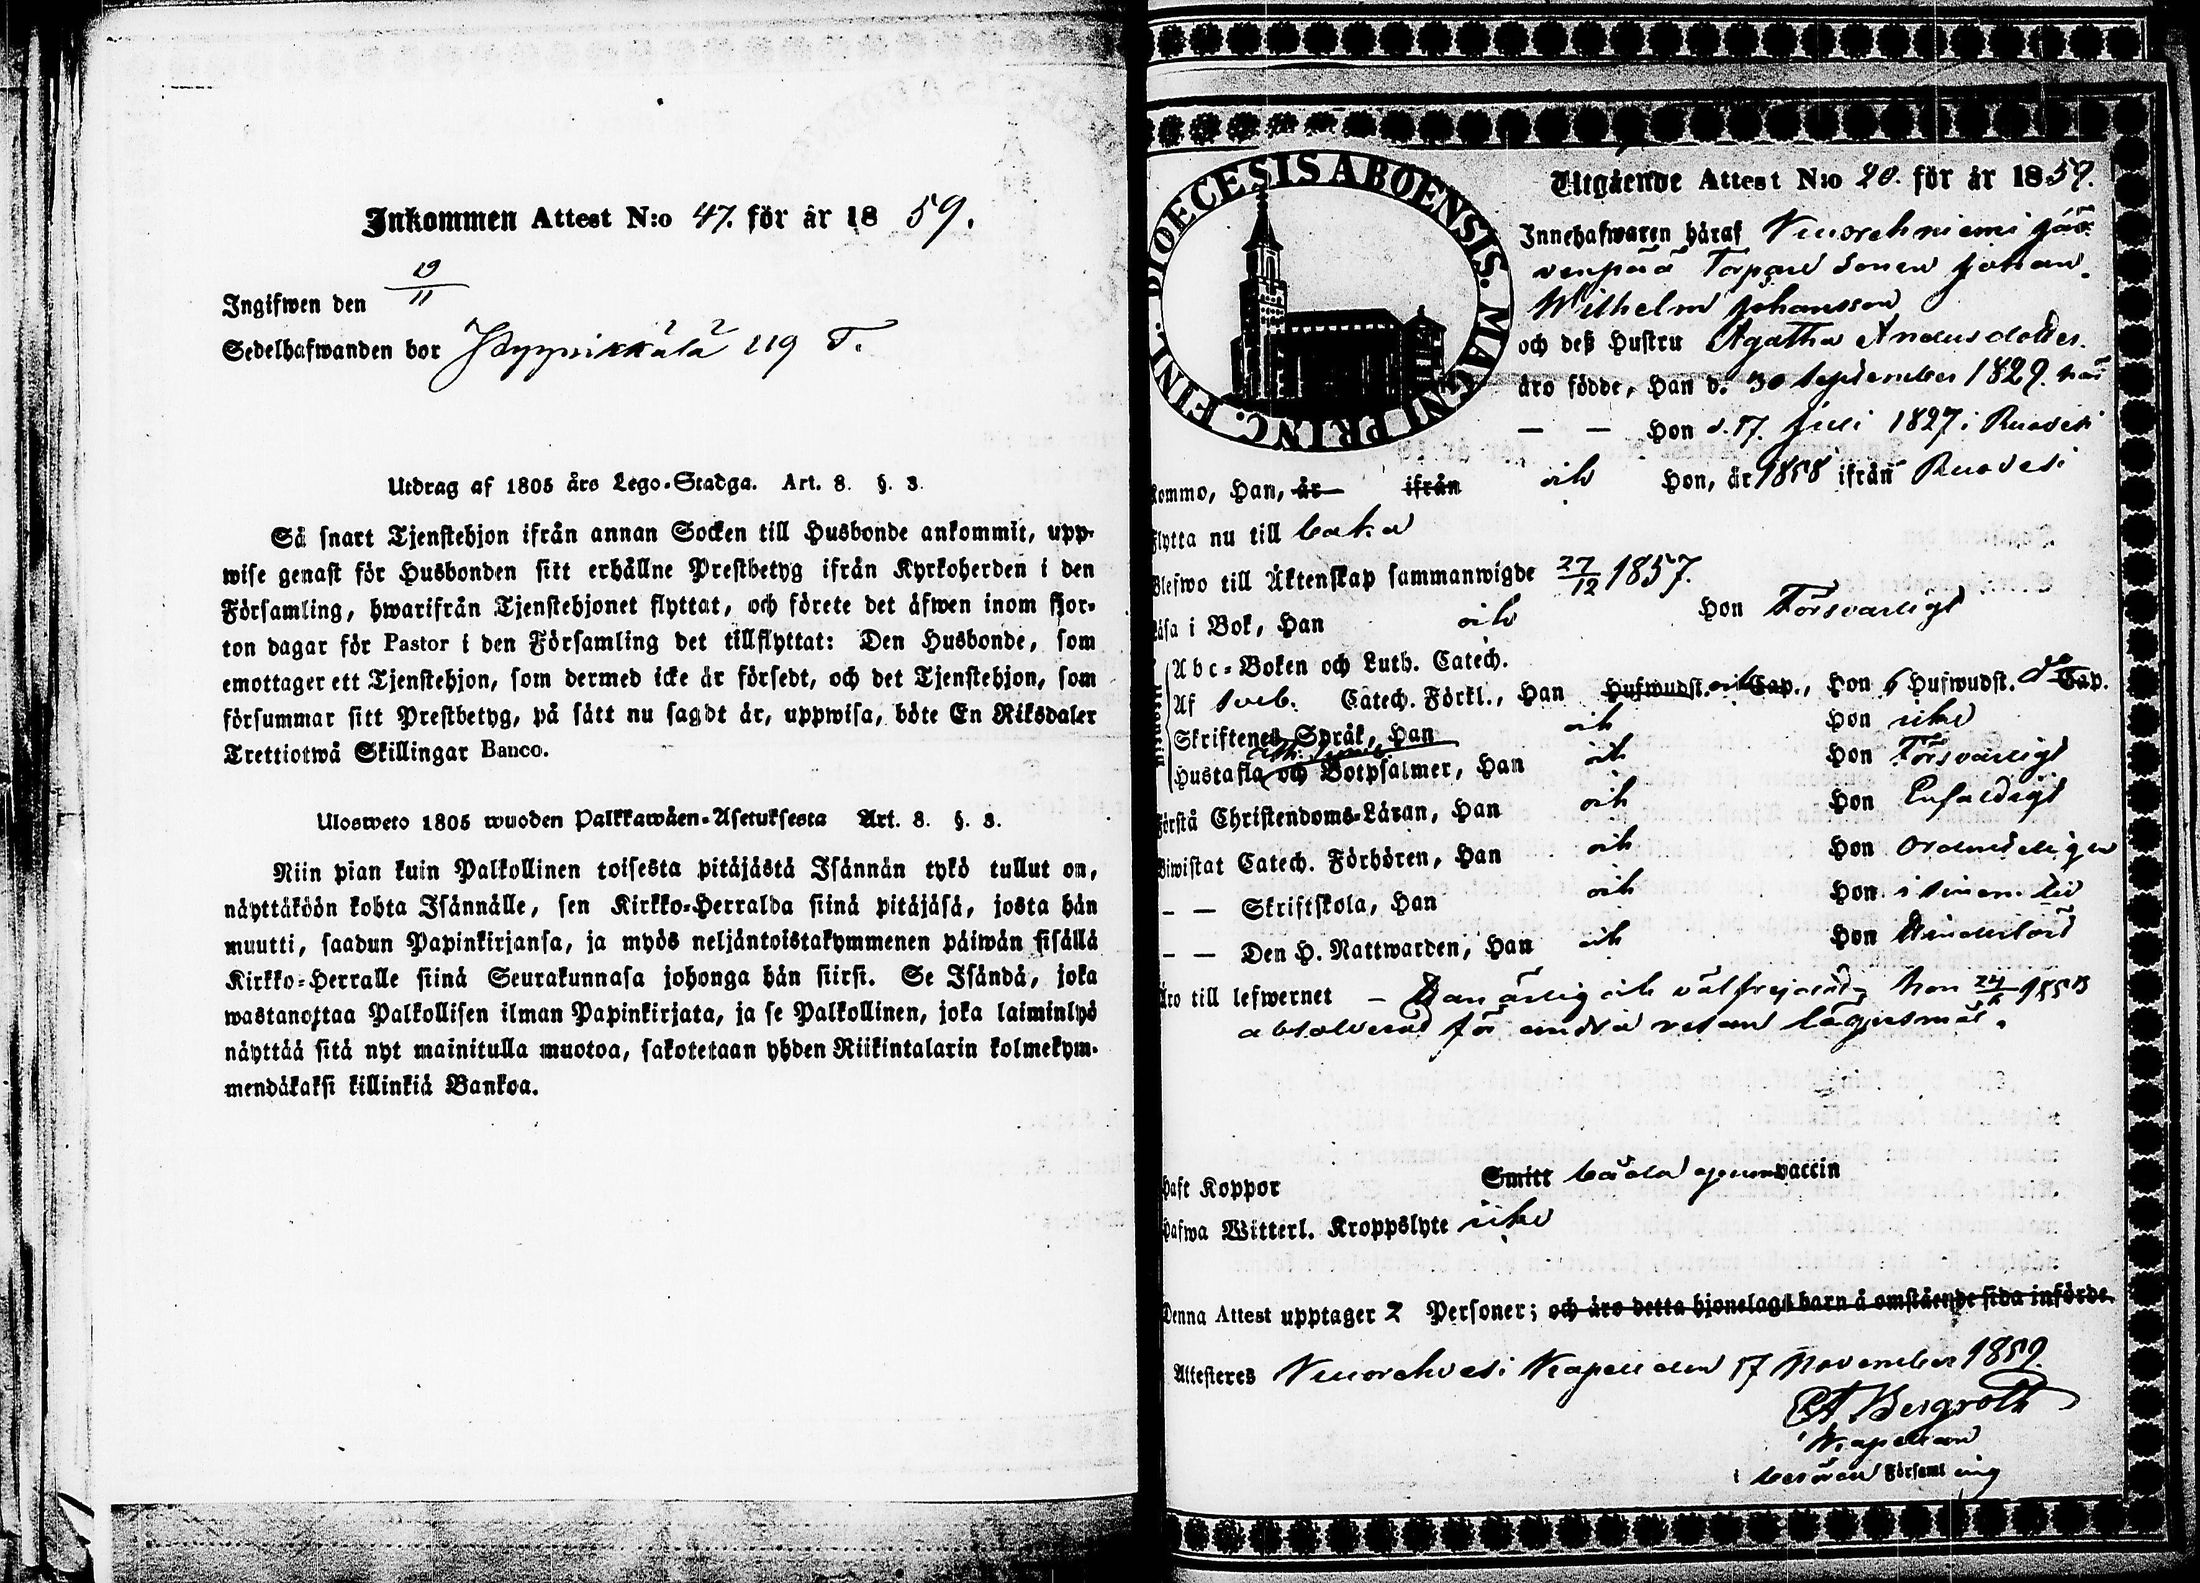 Inkommen Attest N:o 47. för år 18 59.
Ingifwen den 19/11
Sedelhafwanden bor 119 T.
Utdrag af 1805 års Lego-Stadga. Art. 8. §. 3.
Så snart Tjenstehjon ifrån annan Socken till Husbonde ankommit, upp-
wise genast för Husbonden sitt erhållne Prestbetyg ifrån Kyrkoherden i den
Församling, hwarifrån Tjenstehjonet flyttat, och förete det äfwen inom fjor-
ton dagar för Pastor i den Församling det tillflyttat: Den Husbonde, som
emottager ett Tjenstehjon, som dermed icke är försedt, och det Tjenstehjon, som
försummar sitt Prestbetyg, på sätt nu sagdt är, uppwisa, böte En Riksdaler
Trettiotwå Skillingar Banco.
Ulosweto 1805 wuoden Palkkawäen-Asetuksesta Art. 8. §. 3.
Niin pian kuin Palkollinen toisesta pitäjästä Isännän tykö tullut on,
näyttäköön kohta Isännälle, sen Kirkko-Herralda siinä pitäjäsä, josta hän
muutti, saadun Papinkirjansa, ja myös neljäntoistakymmenen päiwän sisällä
Kirkko-Herralle siinä Seurakunnasa johonga hän siirsi. Se Isändä, joka
wastanottaa Palkollisen ilman Papinkirjata, ja se Palkollinen, joka laiminlyö
näyttää sitä nyt mainitulla muotoa, sakotetaan yhden Riikintalarin kolmekym-
mendäkaksi killinkiä Bankoa.
DIOECESIS ABOENSIS. MAGNI PRINC. FINL.
Utgående Attest N:o 20. för år 1859.
Innehafwaren häraf Kuorehniemi Jär-
venpää Torpare Sonen Johan
Wilhelm Johansson
och deß Hustru Agatha Andersdotter
äro födde, Han d. 30 September 1829. här
— — Hon d. 17. Juli 1827 i Ruovesi
kommo, Han, år ifrån och Hon, år 1858 ifrån Ruovesi
flytta nu till
Blefwo till Äktenskap sammanwigde 27/12 1857.
Läsa i Bok, Han och Hon Försvarligt
Abc-Boken och Luth. Catech.
Af Sveb. Catech. Förkl., Han Hufwudst. och Cap., Hon 6 Hufwudst. Cap.
Skriftenes Språk, Han och Hon icke
Hustafla och Botpsalmer, Han och Hon Försvarligt
Förstå Christendoms-Läran, Han och Hon Enfaldigt
Biwistat Catech. Förhören, Han och Hon Ordenteligen
— — Skriftskola, Han och Hon i sinom tid
— — Den H. Nattwarden, Han och Hon
Äro till lefwernet – Han ärlig och välfrejdad, Hon
absolverad för andra resan lägersmål.
Haft Koppor Smitt båda genom vaccin
Hafwa Witterl. Kroppslyte icke
Denna Attest upptager 2 Personer; och äro detta hjonelags barn å omstående sida införde.
Attesteres Kuorehvesi Kapell den 17 November 1859.
Bergroth
Kapellan
i berörde Församling